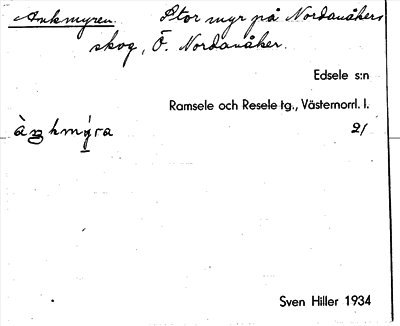 Ankmyren. Stor myr på Nordanåkers
skog, Ö. Nordanåker.
Edsele s:n
Ramsele och Resele tg., Västernorrl. l.
àŋkmýra 21
Sven Hiller 1934